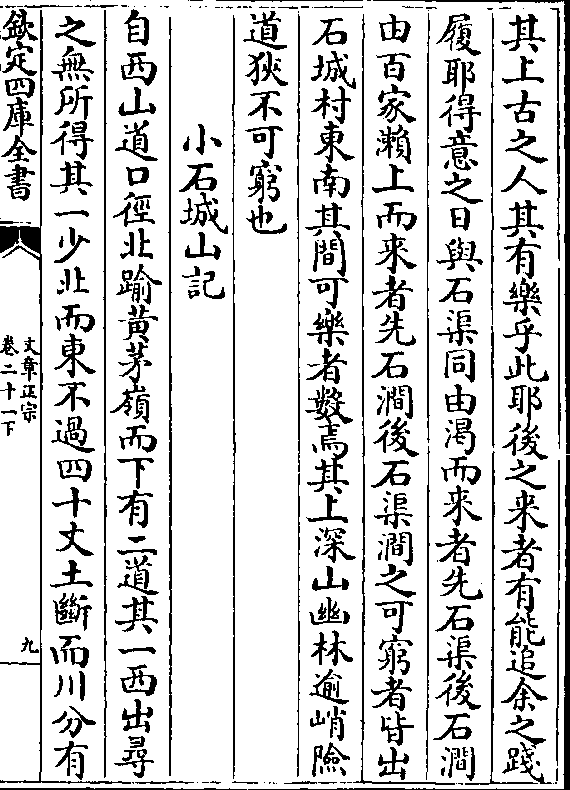 其上古之人其有樂乎此耶後之来者有能追余之踐
履耶得意之日與石渠同由渴而来者先石渠後石澗
由百家瀨上而来者先石澗後石渠澗之可窮者皆出
石城村東南其間可樂者數焉其上深山幽林逾峭險
道狹不可窮也
小石城山記
自西山道口徑北踰黃茅嶺而下有二道其一西出尋
之無所得其一少北而東不過四十丈土斷而川分有
欽定四庫全書
文章正宗
卷二十一下
九